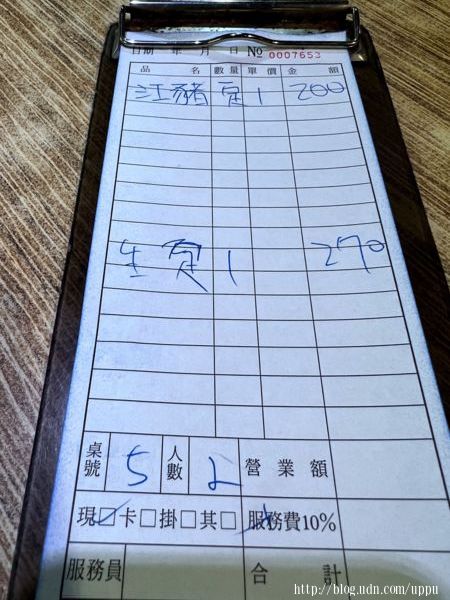 日期 年 月 日 № 0007653
品 名 數量 單價 金 額
江豬 定 1 200
生定 1 270
桌號 5 人數 2 營業額
現☑卡□掛□其□ 服務費10%
服務員 合 計
http://blog.udn.com/uppu